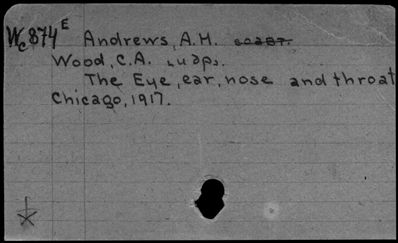 Wc874E Andrews, A.H.
Wood, C.A.
The Eye, ear, nose and throat
Chicago, 1917.